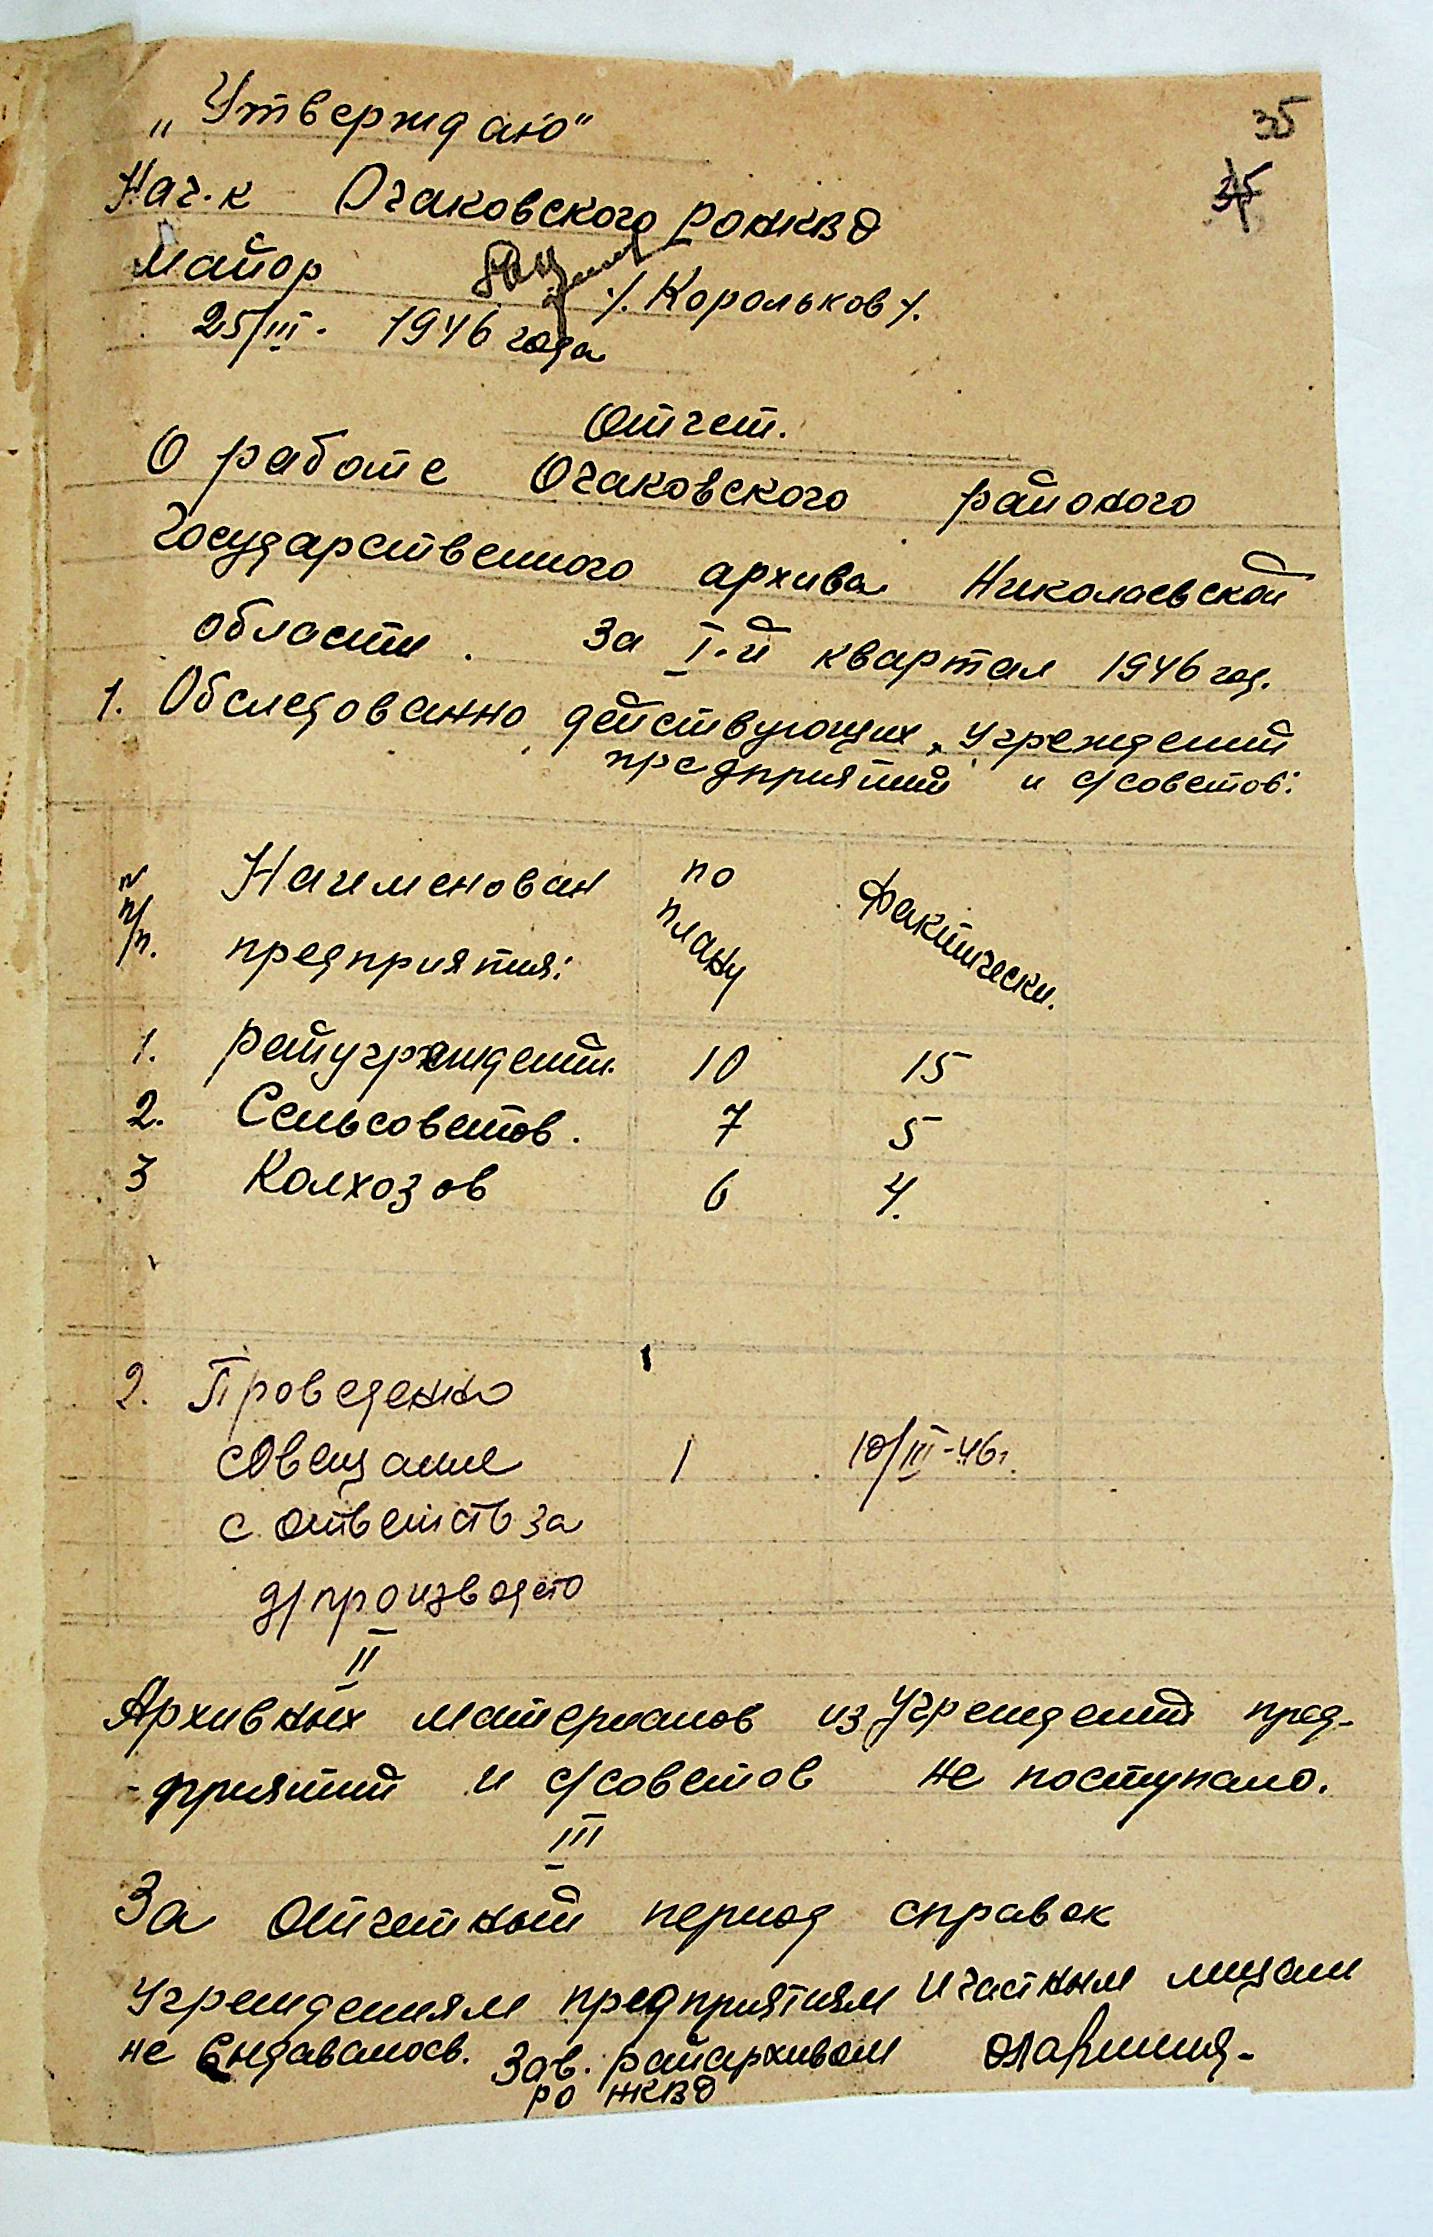 35
„Утверждаю"
35
Нач.к Очаковского РОНКВД
Майор /. Корольков /.
25/III. 1946 года
Отчет.
О работе Очаковского районого
Государственного архива Николаевской
области. За I-й квартал 1946 год.
1. Обследованно действующих, учреждений
предприятий и с/советов:
N п/п. Наименован предприятия: по плану Фактически.
1. Райучреждений. 10 15
2. Сельсоветов. 7 5
3 Колхозов 6 4.
2. Проведенно
совещание 1 10/III-46г.
с ответств за
д/производсто
II
Архивных материалов из учреждений пред-
-приятий и с/советов не поступало.
III
За отчетный период справок
учреждениям предприятиям и частным лицам
не выдавалось. Зав. райархивом
РО НКВД